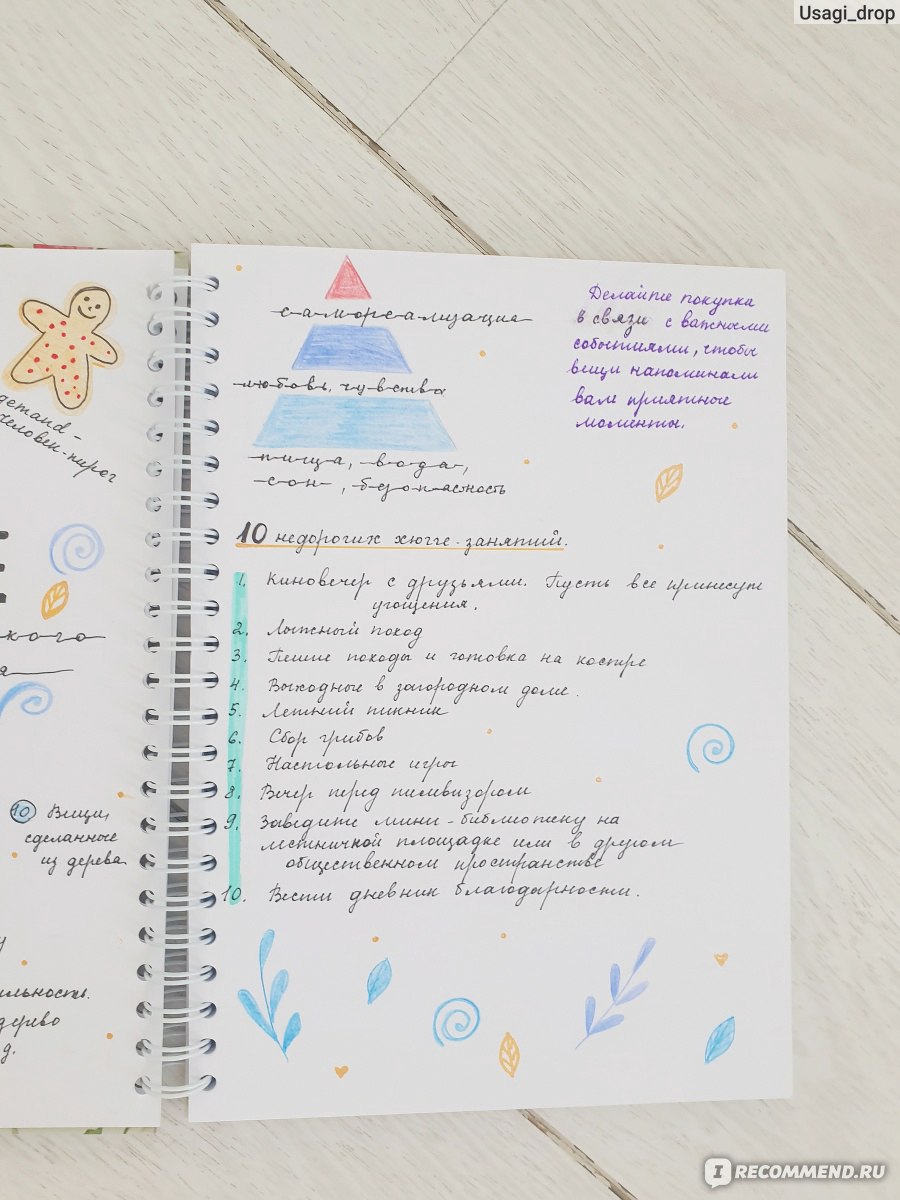 Usagi_drop
человек-пирог
кого
10 Вещи,
сделанные
из дерева
дерево
самореализация
любовь, чувства
пища, вода,
сон, безопасность
Делайте покупки
в связи с важными
событиями, чтобы
вещи напоминали
вам приятные
моменты.
10 недорогих хюгге-занятий.
1. Киновечер с друзьями. Пусть все принесут
угощения.
2. Лыжный поход
3. Пешие походы и готовка на костре
4. Выходные в загородном доме.
5. Летний пикник
6. Сбор грибов
7. Настольные игры
8. Вечер перед телевизором
9. Заведите мини-библиотеку на
лестничной площадке или в другом
общественном пространстве
10. Вести дневник благодарности.
IRECOMMEND.RU